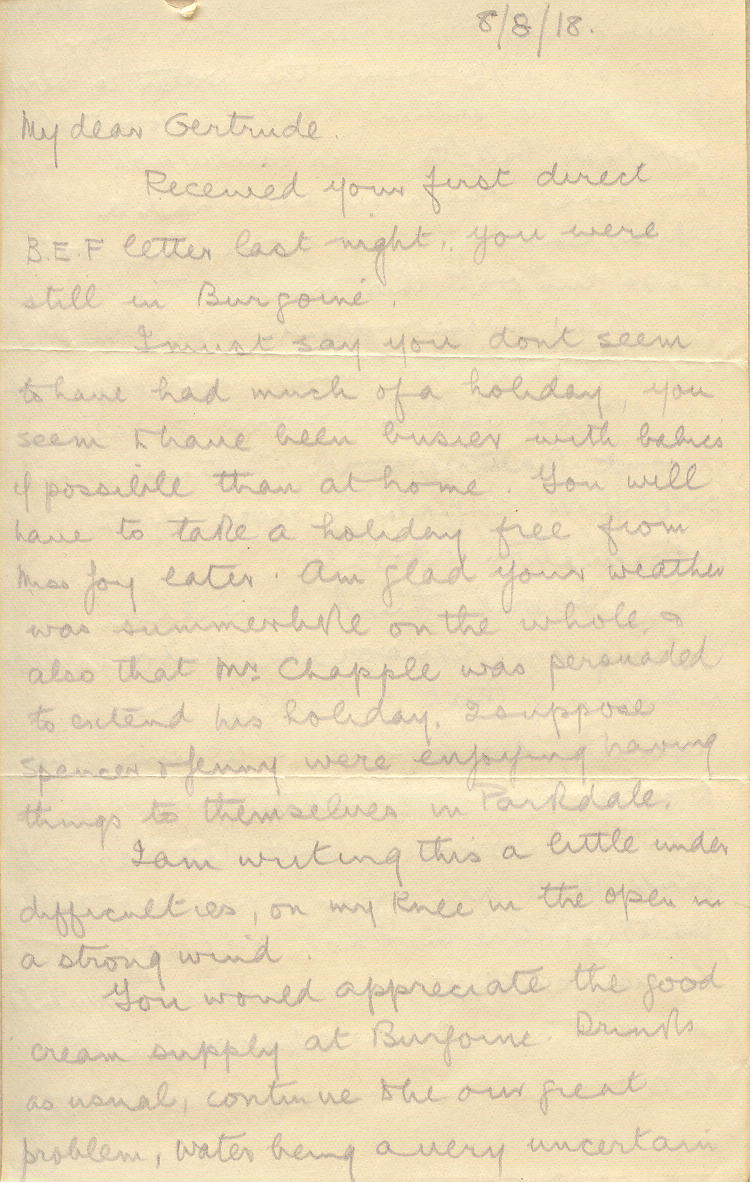 8/8/18.
My dear Gertrude.
Received your first direct
B.E.F letter last night, you were
still in Burgoine.
I must say you dont seem
to have had much of a holiday, you
seem to have been busier with babies
if possible than at home. You will
have to take a holiday free from
Miss Joy later. Am glad your weather
was summerlike on the whole, &
also that Mr. Chapple was persuaded
to extend his holiday. I suppose
Spencer & Jenny were enjoying having
things to themselves in Parkdale.
I am writing this a little under
difficulties, on my knee in the open in
a strong wind.
You would appreciate the good
cream supply at Burgoine. Drinks
as usual, continue to be our great
problem, water being a very uncertain